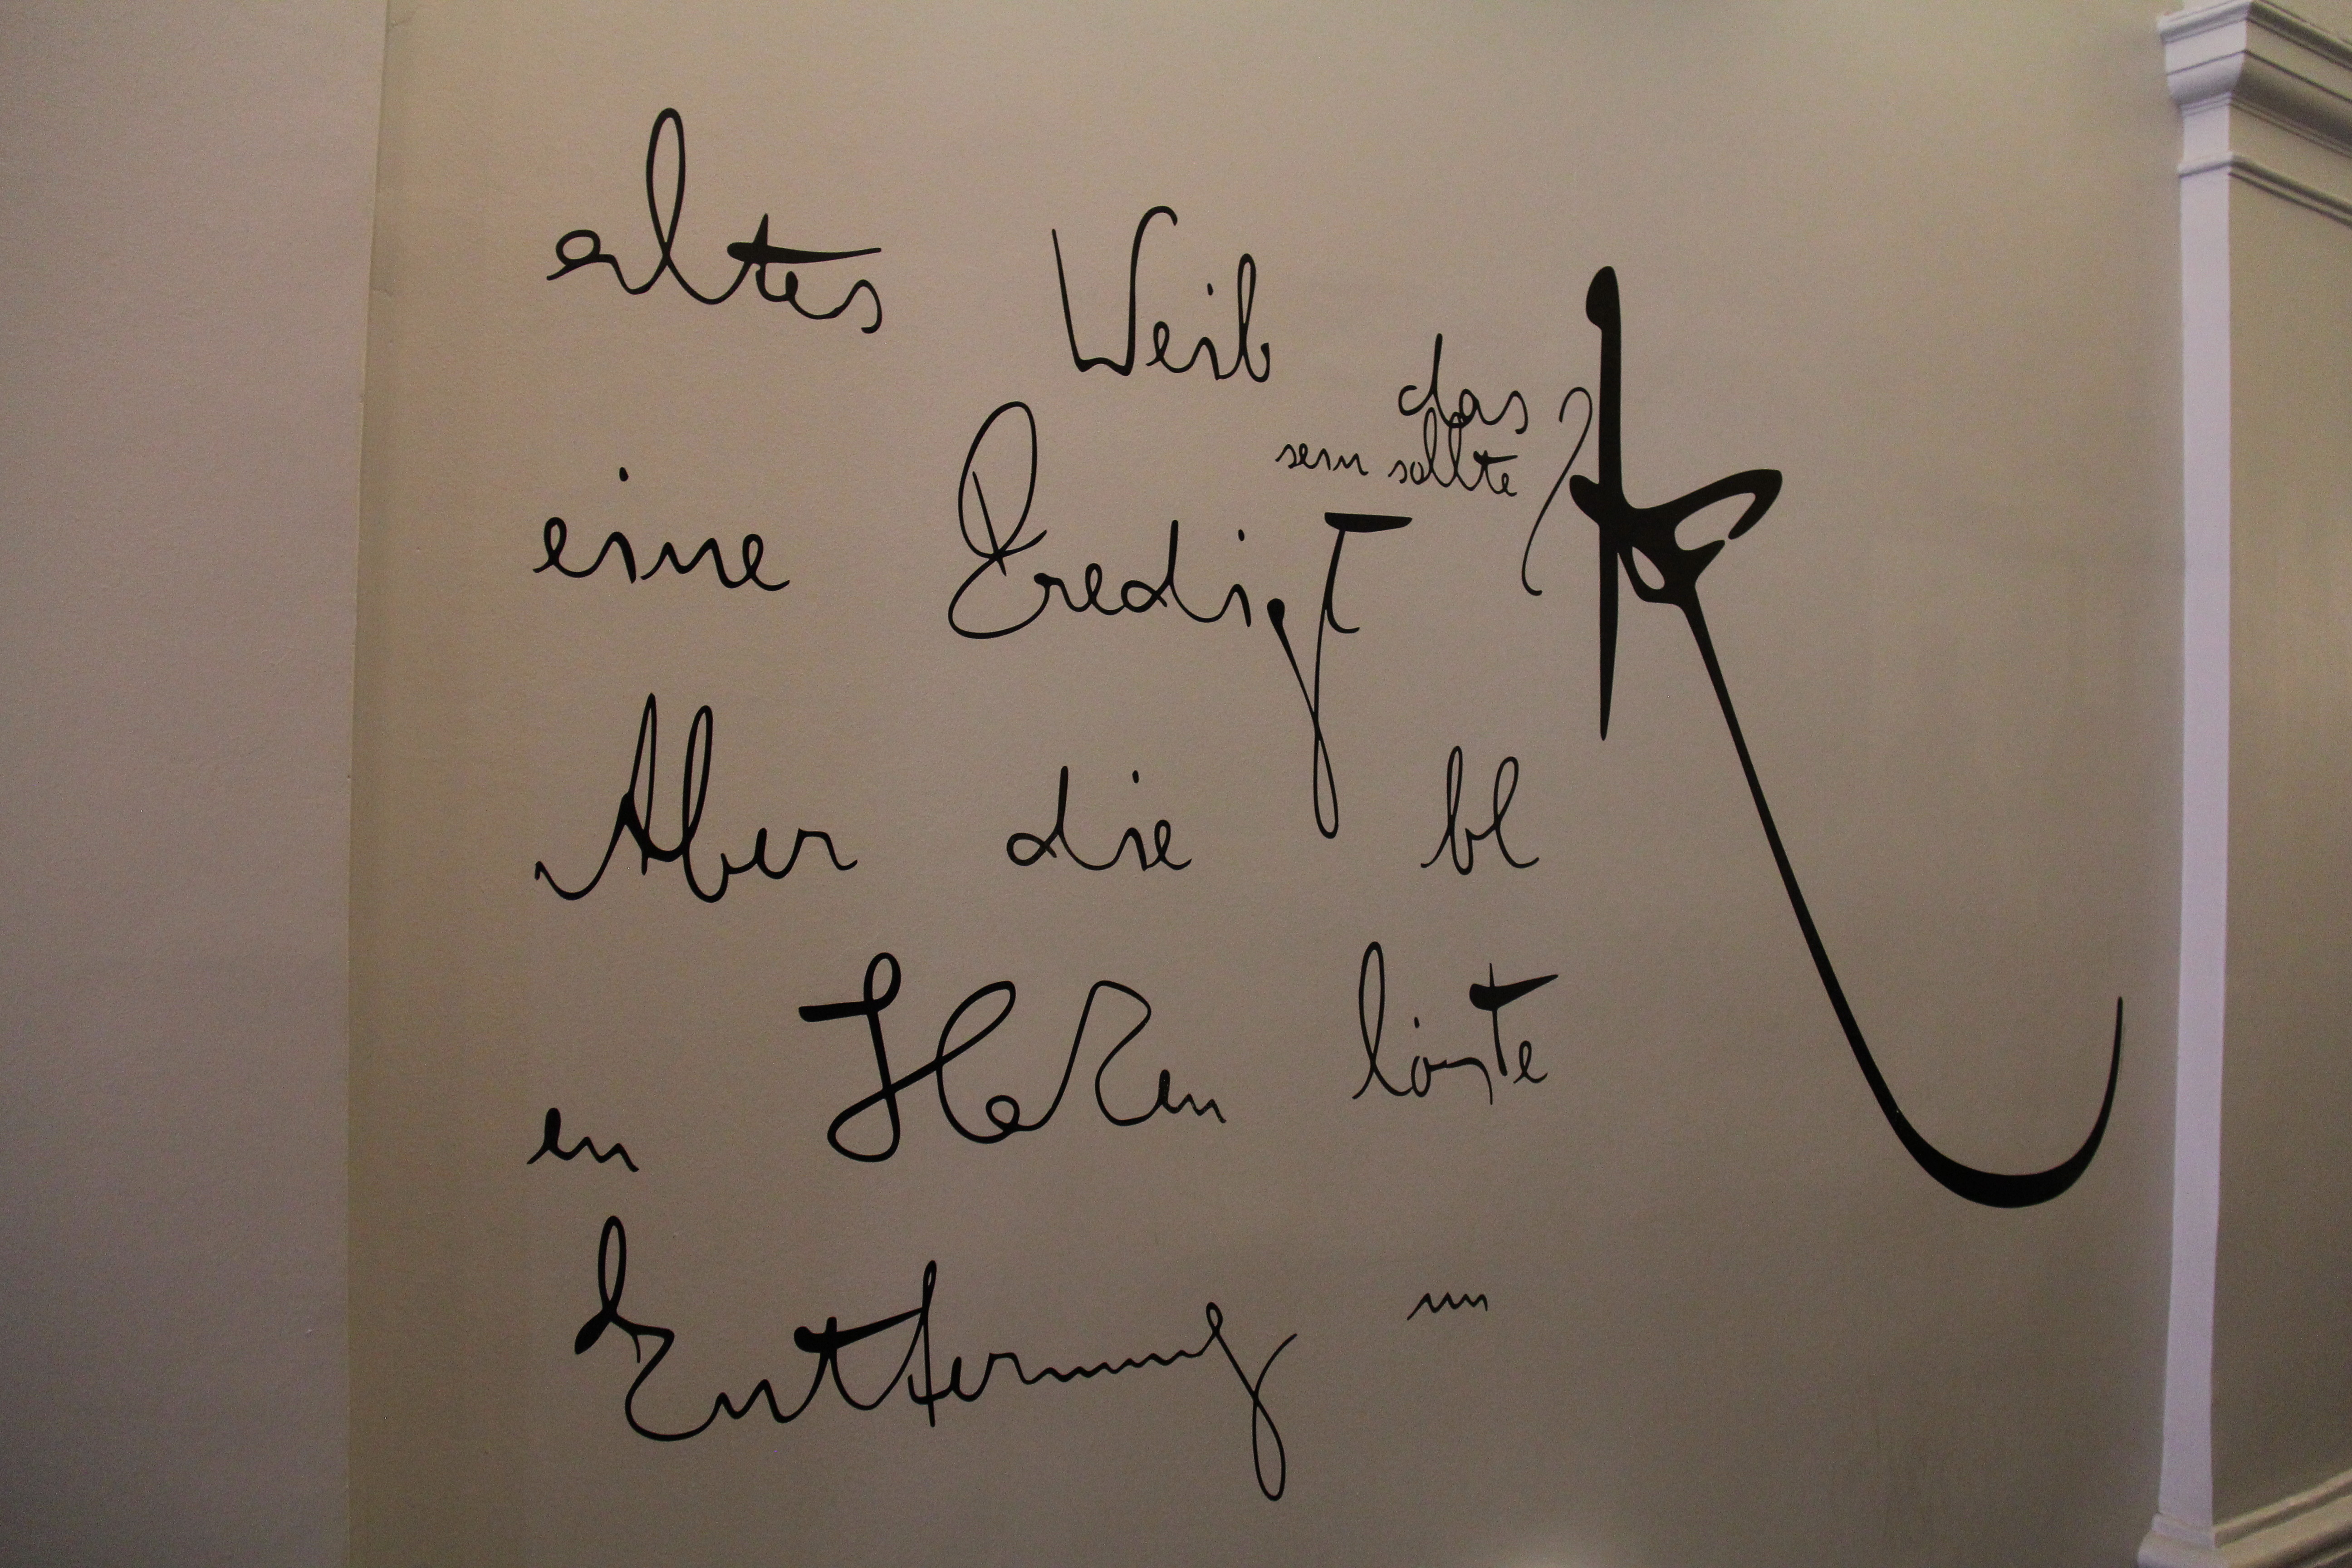 altes Weib
das
sein sollte
eine Predigt
K
Aber die bl
en Herzen löste
Entfernung